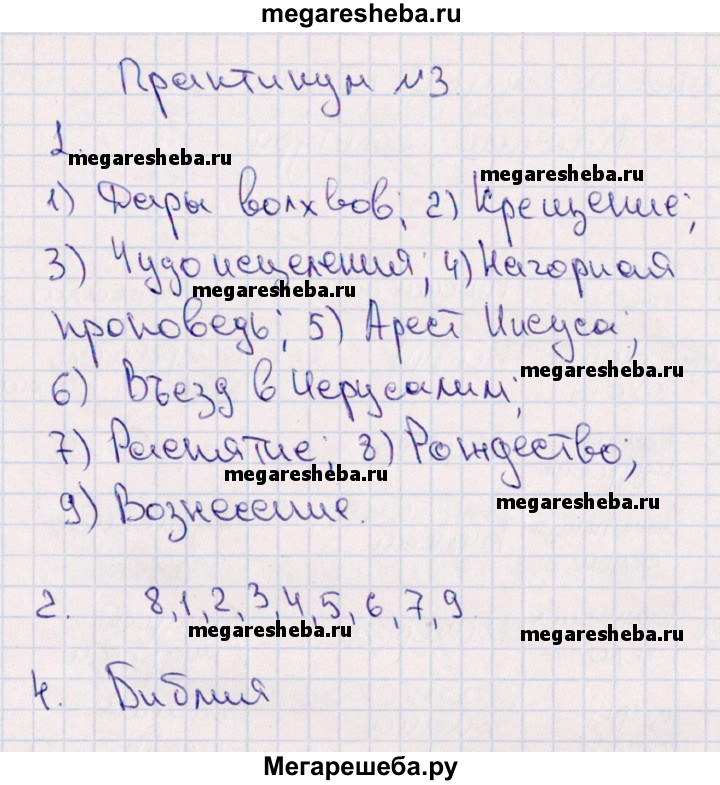 megaresheba.ru
Практикум №3.
1.
megaresheba.ru
megaresheba.ru
1) Дары волхвов; 2) Крещение;
3) Чудо исцеления; 4) Нагорная
megaresheba.ru
megaresheba.ru
проповедь; 5) Арест Иисуса;
megaresheba.ru
6) Въезд в Иерусалим;
7) Распятие; 8) Рождество;
megaresheba.ru
megaresheba.ru
9) Вознесение.
2. 8,1,2,3,4,5,6,7,9
megaresheba.ru
megaresheba.ru
4. Библия
Мегарешеба.ру